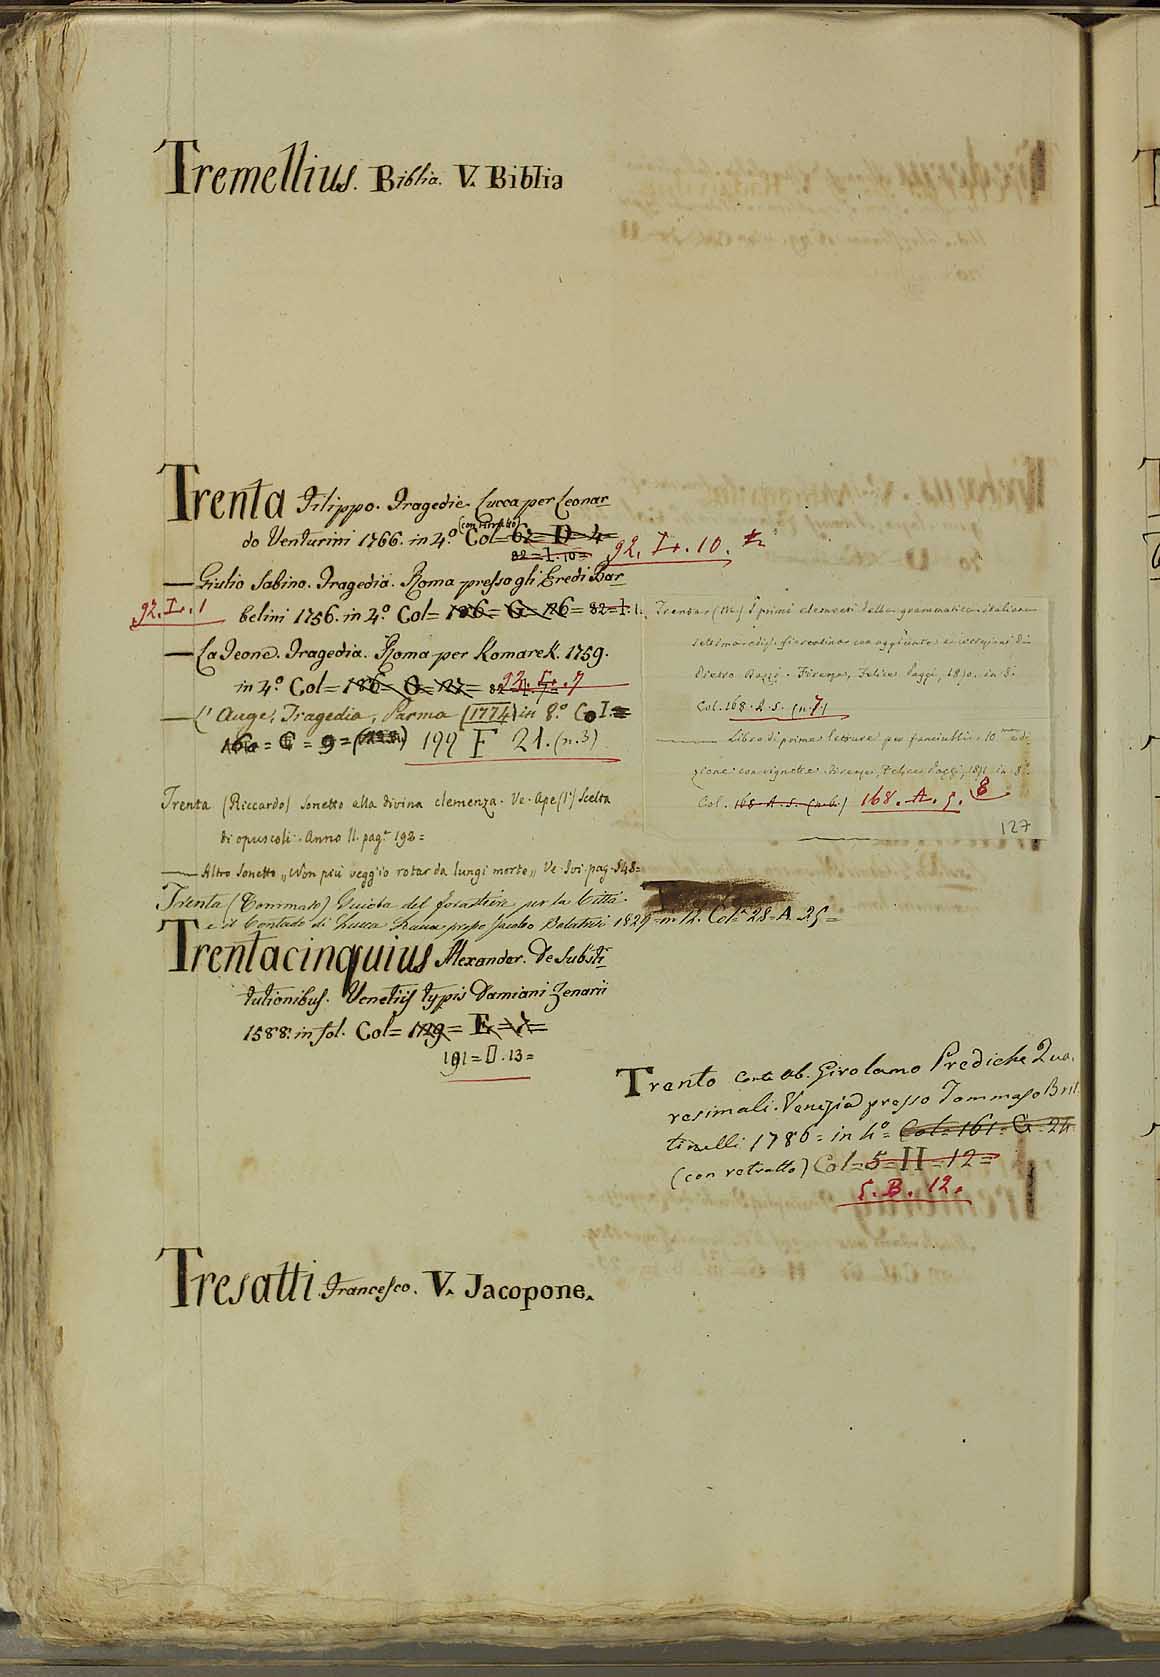 Tremellius. Biblia. V. Biblia
Trenta Filippo. Tragedie. Lucca per Leonar
do Venturini 1766. in 4.º (con ritratto) Col= 62= D= 4=
82=I.10= 92. I. 10.
— Giulio Sabino. Tragedia. Roma presso gli Eredi Bar
92. I. 1 belini 1756. in 4.º Col= 126= G= 126= 82=I.1.
— La Teone. Tragedia. Roma per Komarek. 1759.
in 4.º Col= 186= O= 27=
— l'Auge, Tragedia, Parma (1774) in 8.º Col.=
= C = 9= 199 F 21. (n.3)
Trenta (Riccardo) Sonetto alla divina clemenza. Ve. Ape (l') Scelta
di opuscoli. Anno II. pag.ª 192=
— Altro Sonetto „Non più veggio rotar da lungi morte„ Ve. Ivi. pag. 348=
Trenta (Tommaso) Guida del forastiere per la Città
e il Contado di Lucca Lucca presso Jacopo Balatresi 1829= in 12. Col.ª 28= A. 25=
Trentacinquius Alexander. De Substi
tutionibus. Venetiis typis Damiani Zenarii
1588. in fol. Col= 129= E= 1=
191= D. 13=
(M.) I primi elementi della grammatica italiana
settima ediz. fiorentina con aggiunte e correzioni di
Pietro Dazzi. Firenze, Felice Paggi, 1870. in 8.
Col. 168. A. 5. (n. 7)
— Libro di prime letture pei fanciulli. 10.ma edi-
zione con vignette. Firenze, Felice Paggi, 1871. in 8º.
Col. 168. A. 5. (n. 6.) 168. A. 5. 8
127
Trento Conte Ab. Girolamo Prediche Qua.
resimali. Venezia presso Tommaso Bet
tinelli 1786= in 4º Col= 161= G= 24
(con retratto) Col= 5= H= 12=
5. B. 12.
Tresatti Francesco. V. Jacopone.